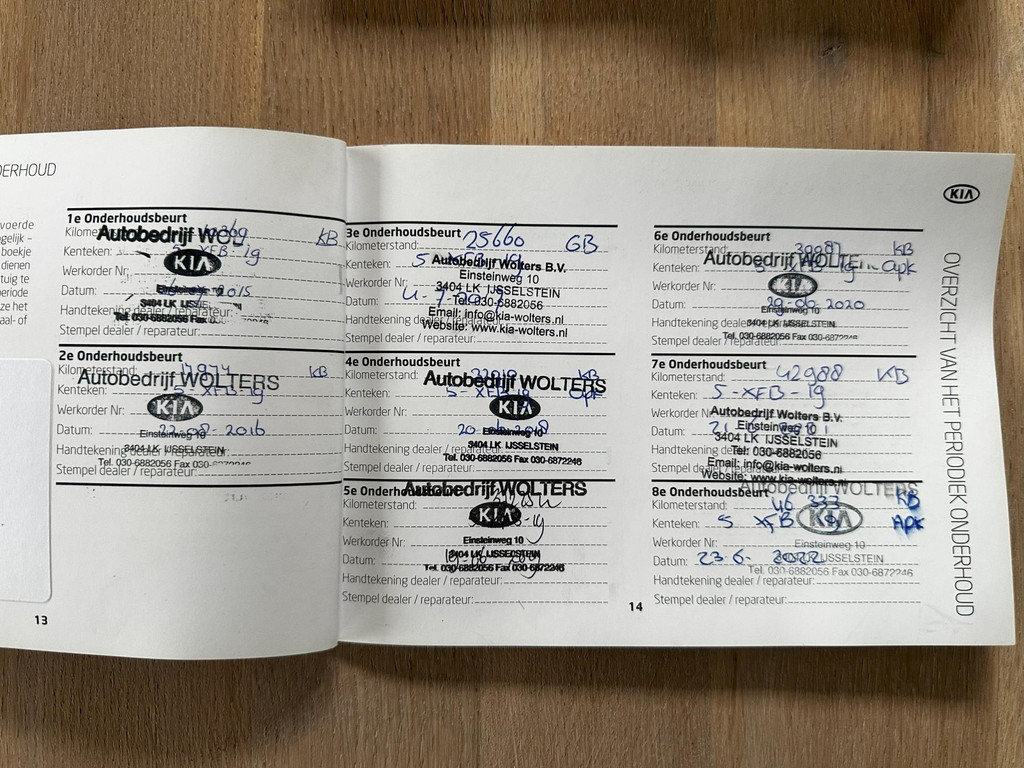 DERHOUD
voerde
gelijk –
boekje
dienen
tuig te
periode
ze het
aal- of
1e Onderhoudsbeurt
KB
Autobedrijf WOL
Kenteken: 5 XFB 19
KIA
Werkorder Nr
Datum: 2015
3404 LK IJSSE
Handtekening
Tel. 030-6882056 Fax 0
Stempel dealer / reparateur:
2e Onderhoudsbeurt
Kilometerstand: KB
Autobedrijf WOLTERS
Kenteken: 5 XFB-19
Werkorder Nr: KIA
Datum: 22-08-2016
Einsteinweg 10
3404 LK IJSSELSTEIN
Handtekening
Tel. 030-6882056 Fax 030-6872246
Stempel dealer / reparateur:
13
3e Onderhoudsbeurt
Kilometerstand: 25660 GB
Kenteken: 5
Autobedrijf Wolters B.V.
Einsteinweg 10
Werkorder Nr
3404 LK IJSSELSTEIN
Datum:
Tel: 030-6882056
Email: info@kia-wolters.nl
Handtekening dealer / reparateur:
Website: www.kia-wolters.nl
Stempel dealer / reparateur:
4e Onderhoudsbeurt
Kilometerstand: KB
Autobedrijf WOLTERS
Kenteken: 5-XFB-19 Apk
Werkorder Nr: KIA
Datum: 20 2018
Einsteinweg 10
3404 LK IJSSELSTEIN
Handtekening dealer
Tel. 030-6882056 Fax 030-6872246
Stempel dealer / reparateur:
5e Onderhoudsbeurt
Autobedrijf WOLTERS
Kilometerstand:
Kenteken: KIA
Werkorder Nr: Einsteinweg 10
Datum: 3404 LK IJSSELSTEIN
Tel. 030-6882056 Fax 030-6872246
Handtekening dealer / reparateur:
Stempel dealer / reparateur:
14
KIA
6e Onderhoudsbeurt
Kilometerstand: KB
Autobedrijf WOLTER
Kenteken: 5 XFB 19 Apk
Werkorder Nr: KIA
Datum: 29-06-2020
Einsteinweg 10
Handtekening dealer
3404 LK IJSSELSTEIN
Tel. 030-6882056 Fax 030-6872246
Stempel dealer / reparateur:
7e Onderhoudsbeurt
Kilometerstand: 42988 KB
Kenteken: 5-XFB-19
Werkorder Nr
Autobedrijf Wolters B.V.
Einsteinweg 10
Datum: 21
3404 LK IJSSELSTEIN
Tel: 030-6882056
Handtekening
Email: info@kia-wolters.nl
Stempel
Website: www.kia-wolters.nl
8e Onderhoudsbeurt
Autobedrijf WOLTERS
Kilometerstand: 46 333 KB
Kenteken: 5 XFB 19 Apk
KIA
Werkorder Nr: Einsteinweg 10
Datum: 23-6-2022
3404 LK IJSSELSTEIN
Tel. 030-6882056 Fax 030-6872246
Handtekening dealer / reparateur:
Stempel dealer / reparateur:
OVERZICHT VAN HET PERIODIEK ONDERHOUD